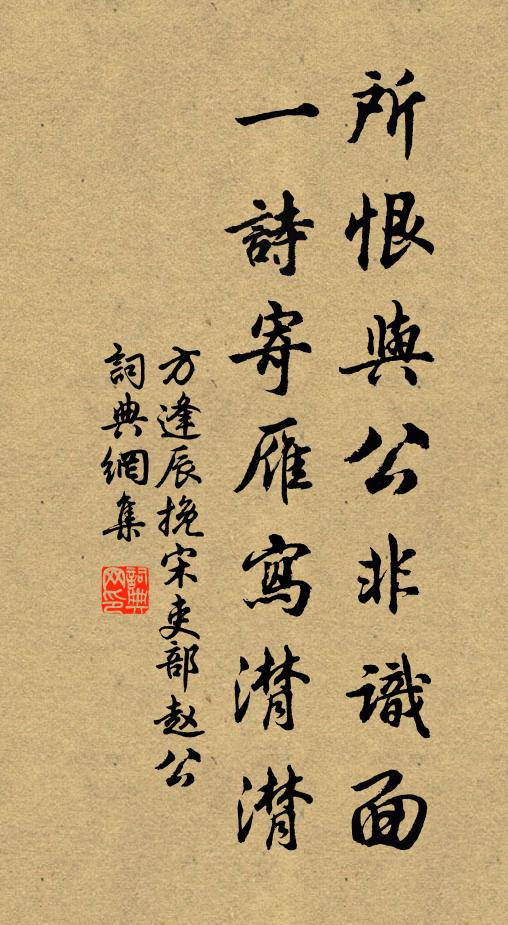 所恨與公非識面
一詩寄雁寫潸潸
方逢辰挽宋吏部赵公
詞典網集
詞典网印